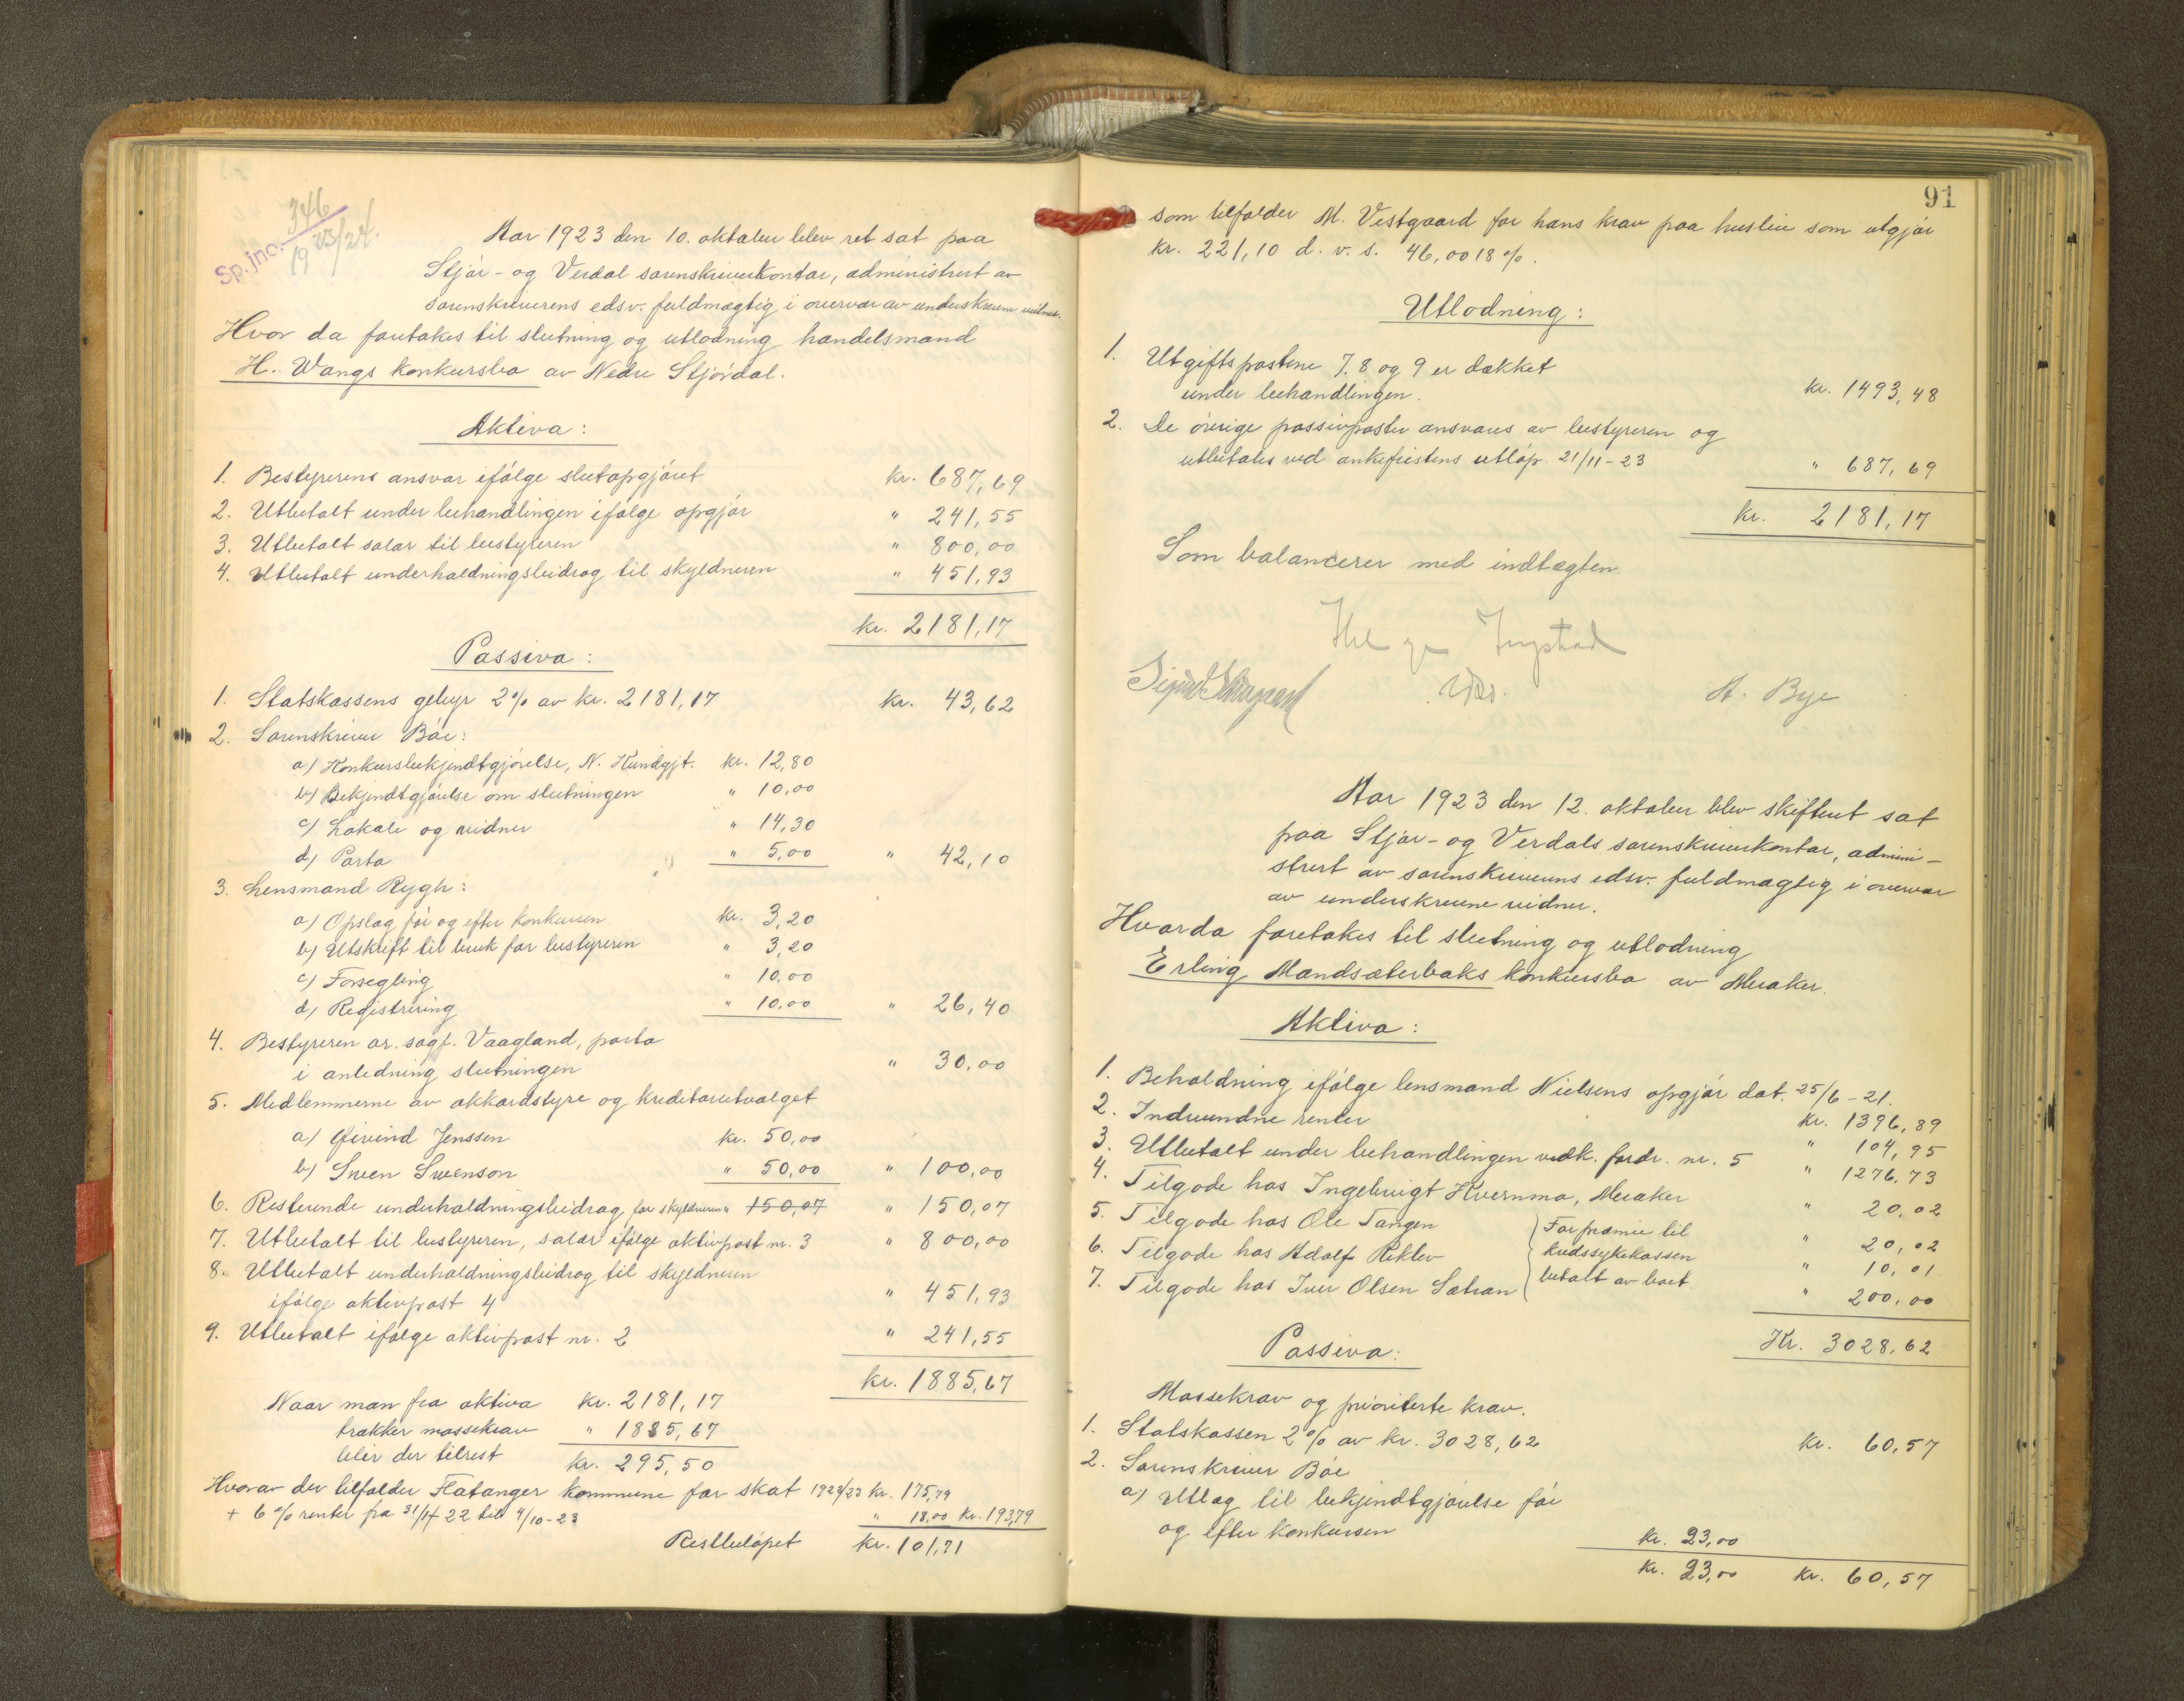 Sp.jnr. 346
19 23/24.
Aar 1923 den 10. oktober blev ret sat paa
Stjør- og Verdal sorenskriverkontor, administrert av
sorenskriverens edsv. fuldmægtig i overvær av underskrevne vidner.
Hvor da foretakes til slutning og utlodning handelsmand
H. Wangs konkursbo av Nedre Stjørdal.
Aktiva:
1. Bestyrerens ansvar ifølge slutopgjøret kr. 687,69
2. Utbetalt under behandlingen ifølge opgjør " 241,55
3. Utbetalt salær til bestyreren " 800,00
4. Utbetalt underholdningsbidrag til skyldneren " 451,93
kr. 2181,17
Passiva:
1. Statskassens gebyr 2% av kr. 2181,17 kr. 43,62
2. Sorenskriver Bøe:
a) Konkursbekjendtgjørelse, N. Kundgjt. kr. 12,80
b) Bekjendtgjørelse om slutningen " 10,00
c) Lokale og vidner " 14,30
d) Porto " 5,00 " 42,10
3. Lensmand Rygh:
a) Opslag før og efter konkursen kr. 3,20
b) Utskrift til bruk for bestyreren " 3,20
c) Forsegling " 10,00
d) Registrering " 10,00 " 26,40
4. Bestyreren or. sagf. Vaagland, porto
i anledning slutningen " 30,00
5. Medlemmerne av akkordstyre og kreditorutvalget
a) Øivind Jenssen kr. 50,00
b) Sven Svenson " 50,00 " 100,00
6. Resterende underholdningsbidrag for skyldneren " 150,07 " 150,07
7. Utbetalt til bestyreren, salær ifølge aktivpost nr. 3 " 800,00
8. Utbetalt underholdningsbidrag til skyldneren
ifølge aktivpost 4 " 451,93
9. Utbetalt ifølge aktivpost nr. 2 " 241,55
kr. 1885,67
Naar man fra aktiva kr. 2181,17
trækker massekrav " 1885,67
blir der tilrest kr. 295,50
Hvorav der tilfalder Flatanger kommune for skat 1922/23 kr. 175,79
+ 6% renter fra 31/1-22 til 4/10-23 " 18,00 kr. 193,79
Restbeløpet kr. 101,71
91
som tilfalder M. Vestgaard for hans krav paa husleie som utgjør
kr. 221,10 d. v. s. 46,0018%.
Utlodning:
1. Utgiftspostene 7. 8 og 9 er dækket
under behandlingen. kr. 1493,48
2. De øvrige passivposter ansvares av bestyreren og
utbetales ved ankefristens utløp 21/11-23 " 687,69
kr. 2181,17
Som balancerer med indtægten.
Helge Ingstad
A. Bye
Aar 1923 den 12. oktober blev skifteret sat
paa Stjør- og Verdals sorenskriverkontor, admini-
strert av sorenskriverens edsv. fuldmægtig i overvær
av underskrevne vidner.
Hvorda foretakes til slutning og utlodning
Erling Mandsæterbaks konkursbo av Meraker.
Aktiva:
1. Beholdning ifølge lensmand Nielsens opgjør dat. 25/6-21. kr. 1396,89
2. Indvundne renter " 104,95
3. Utbetalt under behandlingen vedk. fordr. nr. 5 " 1276,73
4. Tilgode hos Ingebrigt Kvernmo, Meraker " 20,02
5. Tilgode hos Ole Tangen For præmie til " 20,02
6. Tilgode hos Adolf Reklev kredssykekassen " 10,01
7. Tilgode hos Iver Olsen Sætran betalt av boet. " 200,00
Kr. 3028,62
Passiva:
Massekrav og prioriterte krav.
1. Statskassen 2% av kr. 3028,62 kr. 60,57
2. Sorenskriver Bøe
a) Utlæg til bekjendtgjørelse før
og efter konkursen kr. 23,00
kr. 23,00 kr. 60,57